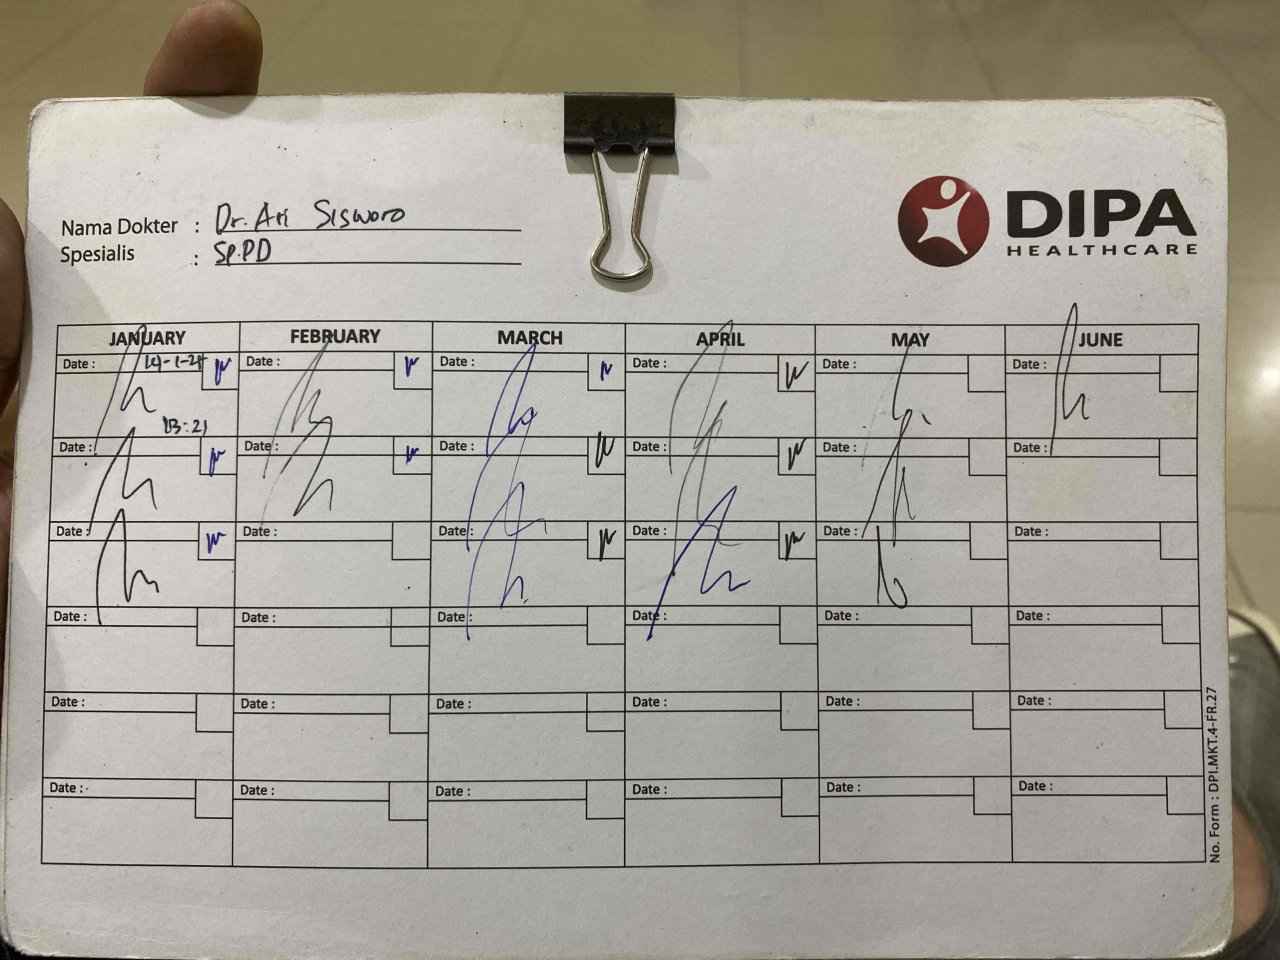 DIPA
HEALTHCARE
Nama Dokter : Dr. Ari Sisworo
Spesialis : Sp.PD
JANUARY FEBRUARY MARCH APRIL MAY JUNE
Date : Date : Date : Date : Date : Date :
Date : Date : Date : Date : Date : Date :
Date : Date : Date : Date : Date : Date :
Date : Date : Date : Date : Date : Date :
Date : Date : Date : Date : Date : Date :
Date : Date : Date : Date : Date : Date :
No. Form : DPI.MKT.4-FR.27